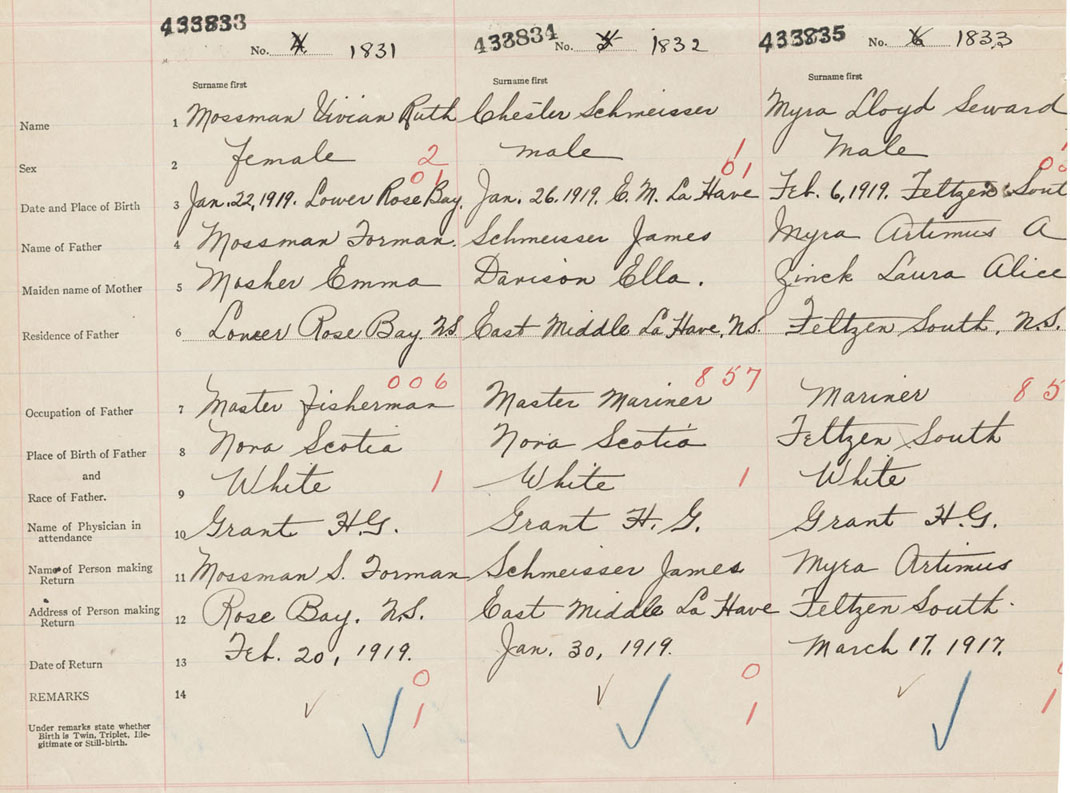 433833 433834 433835
No. 4 1831 No. 5 1832 No. 6 1833
Surname first Surname first Surname first
Name 1 Mossman Vivian Ruth Chester Schmeisser Myra Lloyd Seward
Sex 2 female 2 male 1 Male
01 01
Date and Place of Birth 3 Jan. 22, 1919. Lower Rose Bay. Jan. 26. 1919. E. M. La Have Feb. 6, 1919. Feltzen Sout
Name of Father 4 Mossman Forman. Schmeisser James Myra Artimus A
Maiden name of Mother 5 Mosher Emma Davison Ella. Zinck Laura Alice
Residence of Father 6 Lower Rose Bay. N.S. East Middle La Have, N.S. Feltzen South, N.S.
006 857 85
Occupation of Father 7 Master fisherman Master Mariner Mariner
Place of Birth of Father 8 Nova Scotia Nova Scotia Feltzen South
and
Race of Father. 9 White 1 White 1 White
Name of Physician in
attendance 10 Grant H.G. Grant H. G. Grant H.G.
Name of Person making
Return 11 Mossman S. Forman Schmeisser James Myra Artimus
Address of Person making
Return 12 Rose Bay. N.S. East Middle La Have Feltzen South.
Date of Return 13 Feb. 20, 1919. Jan. 30, 1919. March 17, 1917.
0 0
REMARKS 14
1 1 1
Under remarks state whether
Birth is Twin, Triplet, Ille-
gitimate or Still-birth.